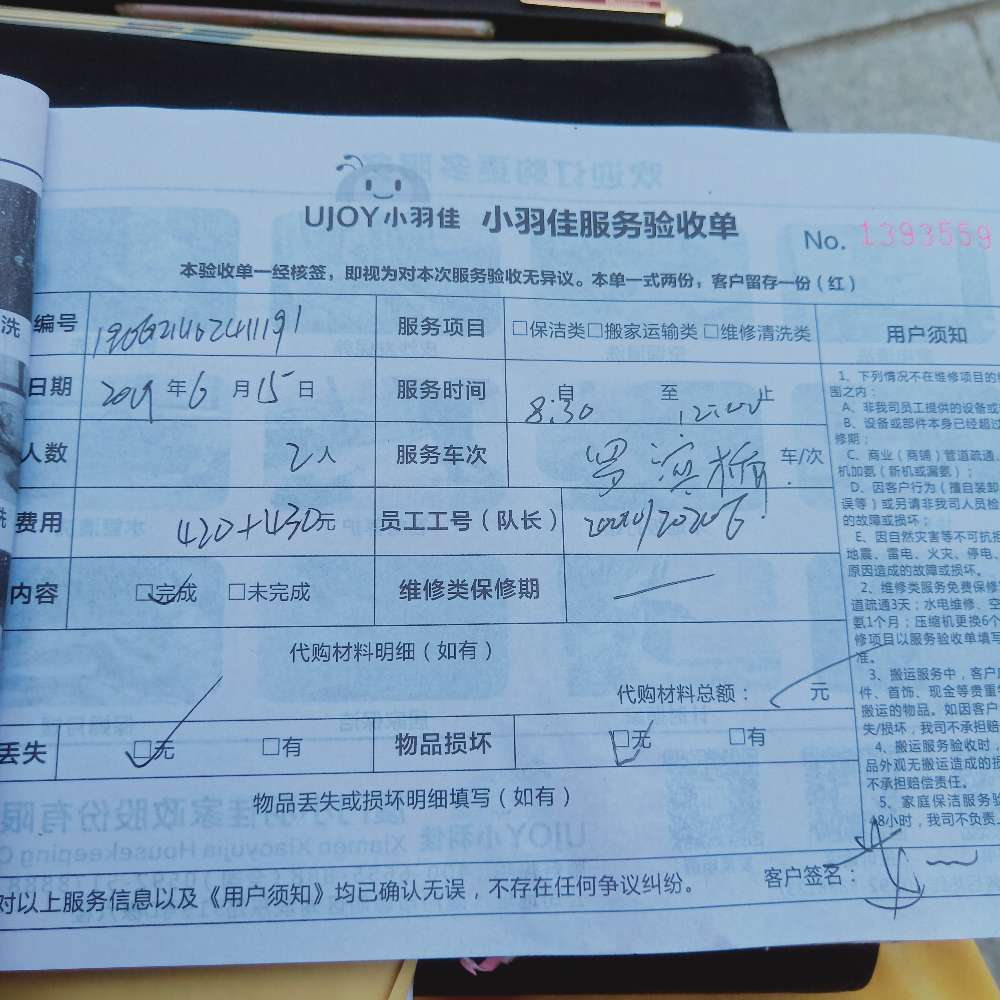 UJOY小羽佳 小羽佳服务验收单 No. 1393559
本验收单一经核签，即视为对本次服务验收无异议。本单一式两份，客户留存一份（红）
编号 服务项目 □保洁类□搬家运输类 □维修清洗类 用户须知
日期 2019 年 6 月 15 日 服务时间 自 8:30 至 12:00 止
人数 2 人 服务车次 车/次
费用 420+430元 员工工号（队长）
内容 □完成 □未完成 维修类保修期 —
代购材料明细（如有）
代购材料总额： 元
丢失 □无 □有 物品损坏 □无 □有
物品丢失或损坏明细填写（如有）
对以上服务信息以及《用户须知》均已确认无误，不存在任何争议纠纷。 客户签名：
1、下列情况不在维修项目的
围之内：
A、非我司员工提供的设备或
B、设备或部件本身已经超过
修期；
C、商业（商铺）管道疏通、
机加氨（新机或漏氨）；
D、因客户行为（擅自装卸
误等）或另请非我司人员检
的故障或损坏；
E、因自然灾害等不可抗拒
地震、雷电、火灾、停电、
原因造成的故障或损坏。
2、维修类服务免费保修
道疏通3天；水电维修、空
氨1个月；压缩机更换6个
修项目以服务验收单填写
准。
3、搬运服务中，客户
件、首饰、现金等贵重
搬运的物品。如因客户
失/损坏，我司不承担赔
4、搬运服务验收时，
品外观无搬运造成的损
不承担赔偿责任。
5、家庭保洁服务验
48小时，我司不负责